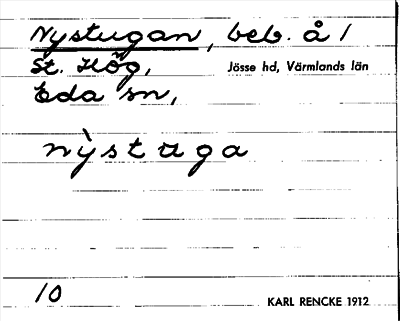 Nystugan, beb. å 1
St. Hög, Jösse hd, Värmlands län
Eda sn,
nỳstuga
10 KARL RENCKE 1912